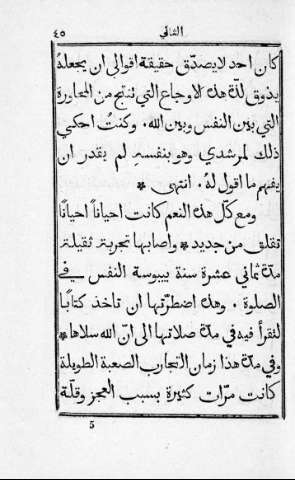 الثاني ٤٥
كان احد لا يصدّق حقيقة اقوالي ان يجعلهُ
يذوق لذّة هذه الاوجاع التي تنتج من المحاورة
التي بين النفس وبين الله. وكنتُ احكي
ذلك لمرشدي وهو بنفسهِ لم يقدر ان
يفهم ما اقول لهُ. انتهى *
ومع كلّ هذه النعم كانت احياناً احياناً
تقلق من جديد * واصابها تجربة ثقيلة
مدّة ثماني عشرة سنة بيبوسة النفس في
الصلوة. وهذه اضطرّتها ان تاخذ كتابًا
لتقرأ فيه في مدّة صلاتها الى انّ الله سلاها *
وفي مدّة هذا زمان التجارب الصعبة الطويلة
كانت مرّات كثيرة بسبب العجز وقلّة
5